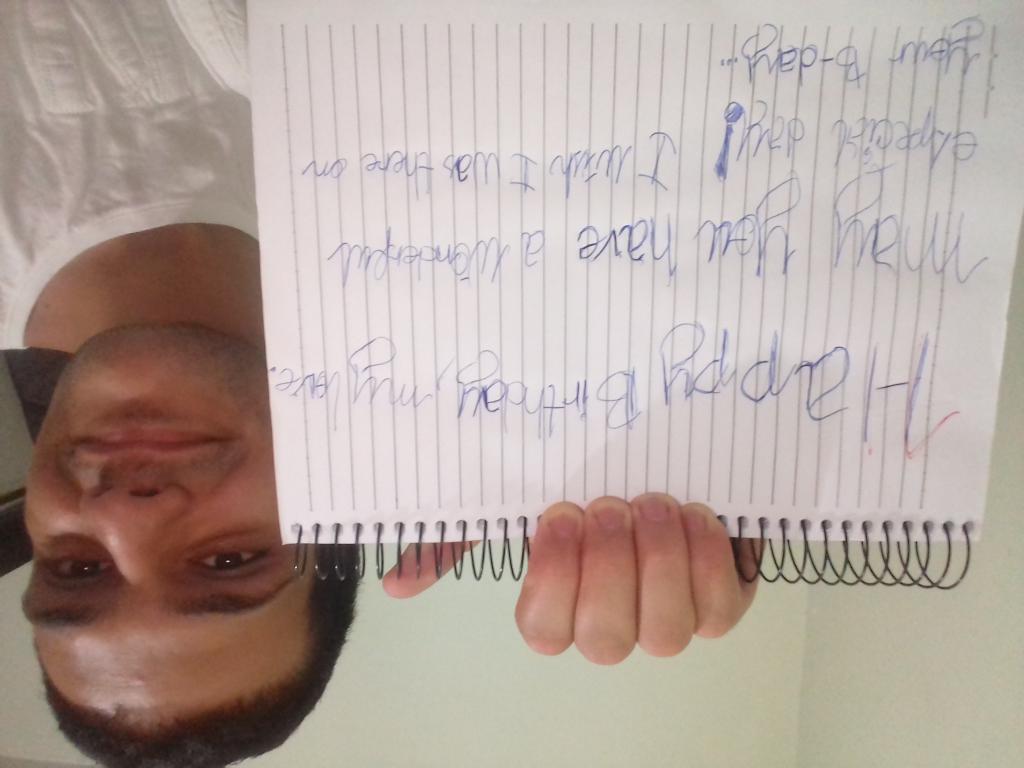 Happy Birthday, my love.
May you have a wonderful
especial day! I wish I was there on
your B-day...